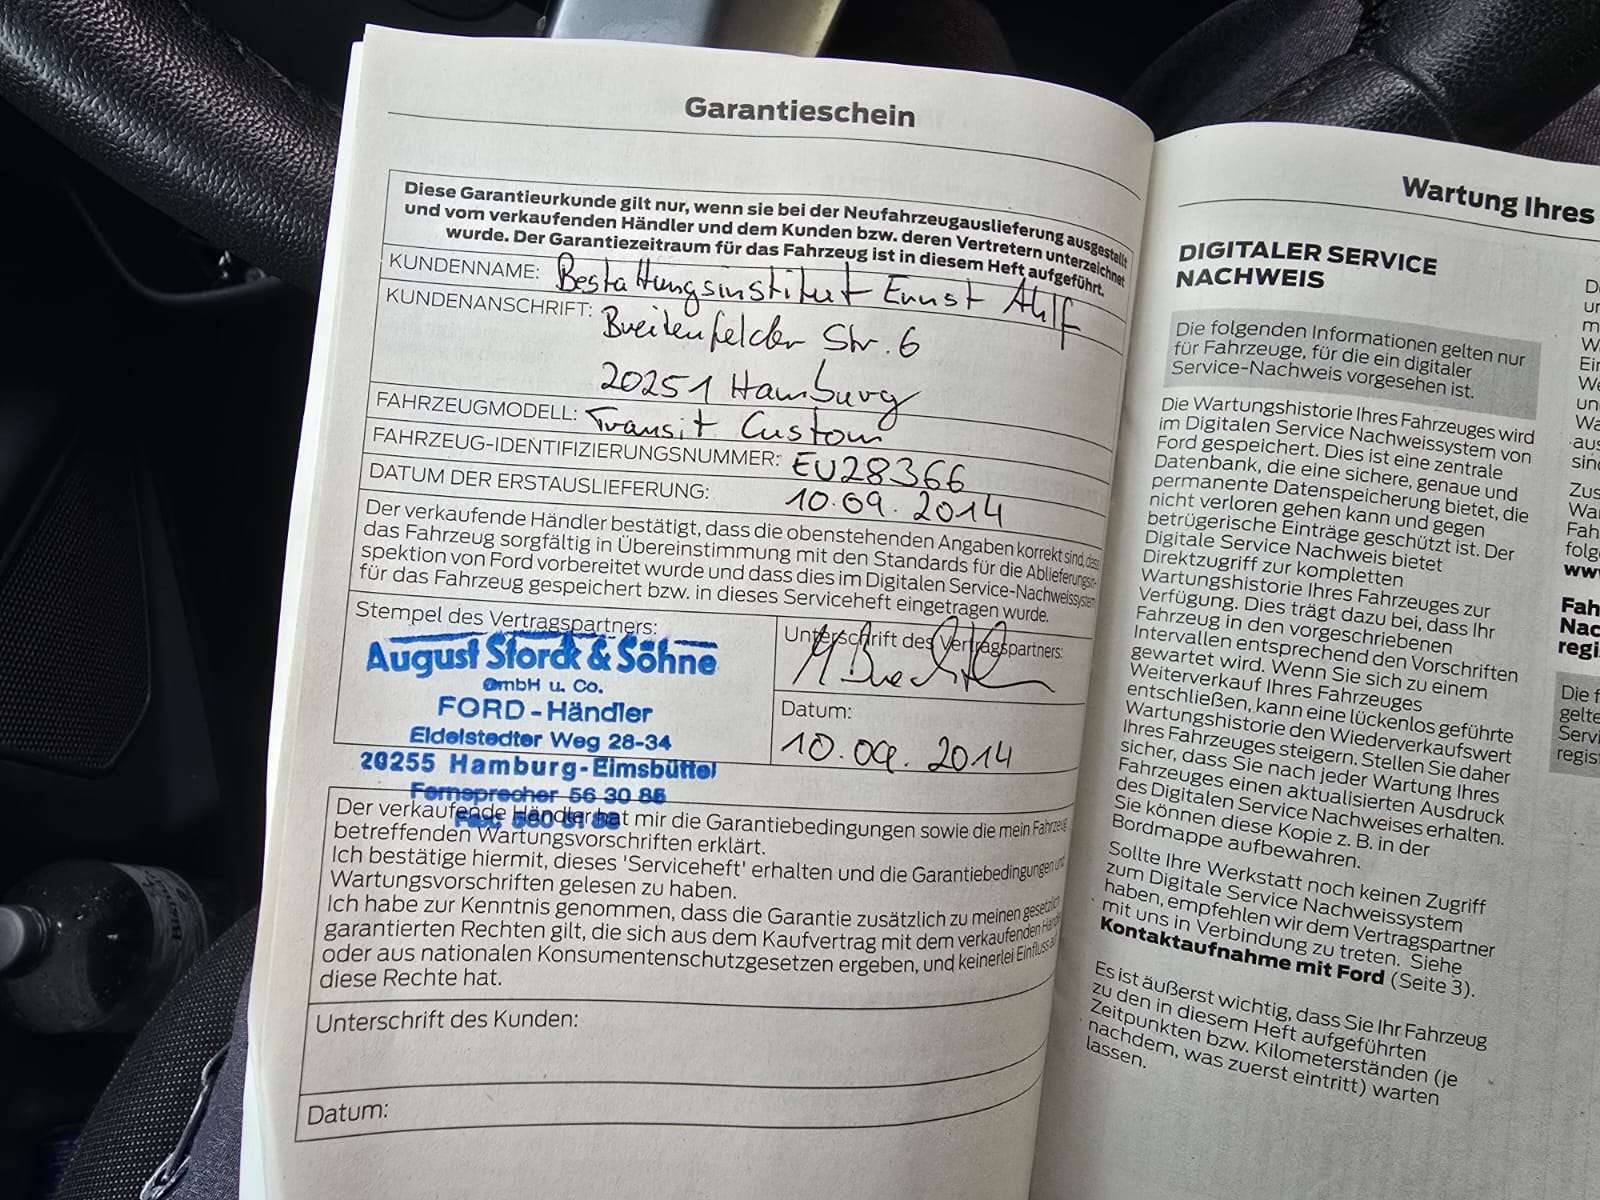 Garantieschein
Diese Garantieurkunde gilt nur, wenn sie bei der Neufahrzeugauslieferung ausgestellt
und vom verkaufenden Händler und dem Kunden bzw. deren Vertretern unterzeichnet
wurde. Der Garantiezeitraum für das Fahrzeug ist in diesem Heft aufgeführt.
KUNDENNAME: Bestattungsinstitut Ernst Ahlf
KUNDENANSCHRIFT: Breitenfelder Str. 6
20251 Hamburg
FAHRZEUGMODELL: Transit Custom
FAHRZEUG-IDENTIFIZIERUNGSNUMMER: EU28366
DATUM DER ERSTAUSLIEFERUNG: 10.09.2014
Der verkaufende Händler bestätigt, dass die obenstehenden Angaben korrekt sind, dass
das Fahrzeug sorgfältig in Übereinstimmung mit den Standards für die Ablieferungsin-
spektion von Ford vorbereitet wurde und dass dies im Digitalen Service-Nachweissystem
für das Fahrzeug gespeichert bzw. in dieses Serviceheft eingetragen wurde.
Stempel des Vertragspartners:
August Storck & Söhne
GmbH u. Co.
FORD - Händler
Eidelstedter Weg 28-34
20255 Hamburg-Eimsbüttel
Fernsprecher 56 30 85
Unterschrift des Vertragspartners:
Datum:
10.09.2014
Der verkaufende Händler hat mir die Garantiebedingungen sowie die mein Fahrzeug
betreffenden Wartungsvorschriften erklärt.
Ich bestätige hiermit, dieses 'Serviceheft' erhalten und die Garantiebedingungen und
Wartungsvorschriften gelesen zu haben.
Ich habe zur Kenntnis genommen, dass die Garantie zusätzlich zu meinen gesetzlich
garantierten Rechten gilt, die sich aus dem Kaufvertrag mit dem verkaufenden Händler
oder aus nationalen Konsumentenschutzgesetzen ergeben, und keinerlei Einfluss auf
diese Rechte hat.
Unterschrift des Kunden:
Datum:
Wartung Ihres
DIGITALER SERVICE
NACHWEIS
Die folgenden Informationen gelten nur
für Fahrzeuge, für die ein digitaler
Service-Nachweis vorgesehen ist.
Die Wartungshistorie Ihres Fahrzeuges wird
im Digitalen Service Nachweissystem von
Ford gespeichert. Dies ist eine zentrale
Datenbank, die eine sichere, genaue und
permanente Datenspeicherung bietet, die
nicht verloren gehen kann und gegen
betrügerische Einträge geschützt ist. Der
Digitale Service Nachweis bietet
Direktzugriff zur kompletten
Wartungshistorie Ihres Fahrzeuges zur
Verfügung. Dies trägt dazu bei, dass Ihr
Fahrzeug in den vorgeschriebenen
Intervallen entsprechend den Vorschriften
gewartet wird. Wenn Sie sich zu einem
Weiterverkauf Ihres Fahrzeuges
entschließen, kann eine lückenlos geführte
Wartungshistorie den Wiederverkaufswert
Ihres Fahrzeuges steigern. Stellen Sie daher
sicher, dass Sie nach jeder Wartung Ihres
Fahrzeuges einen aktualisierten Ausdruck
des Digitalen Service Nachweises erhalten.
Sie können diese Kopie z. B. in der
Bordmappe aufbewahren.
Sollte Ihre Werkstatt noch keinen Zugriff
zum Digitale Service Nachweissystem
haben, empfehlen wir dem Vertragspartner
mit uns in Verbindung zu treten. Siehe
Kontaktaufnahme mit Ford (Seite 3).
Es ist äußerst wichtig, dass Sie Ihr Fahrzeug
zu den in diesem Heft aufgeführten
Zeitpunkten bzw. Kilometerständen (je
nachdem, was zuerst eintritt) warten
lassen.